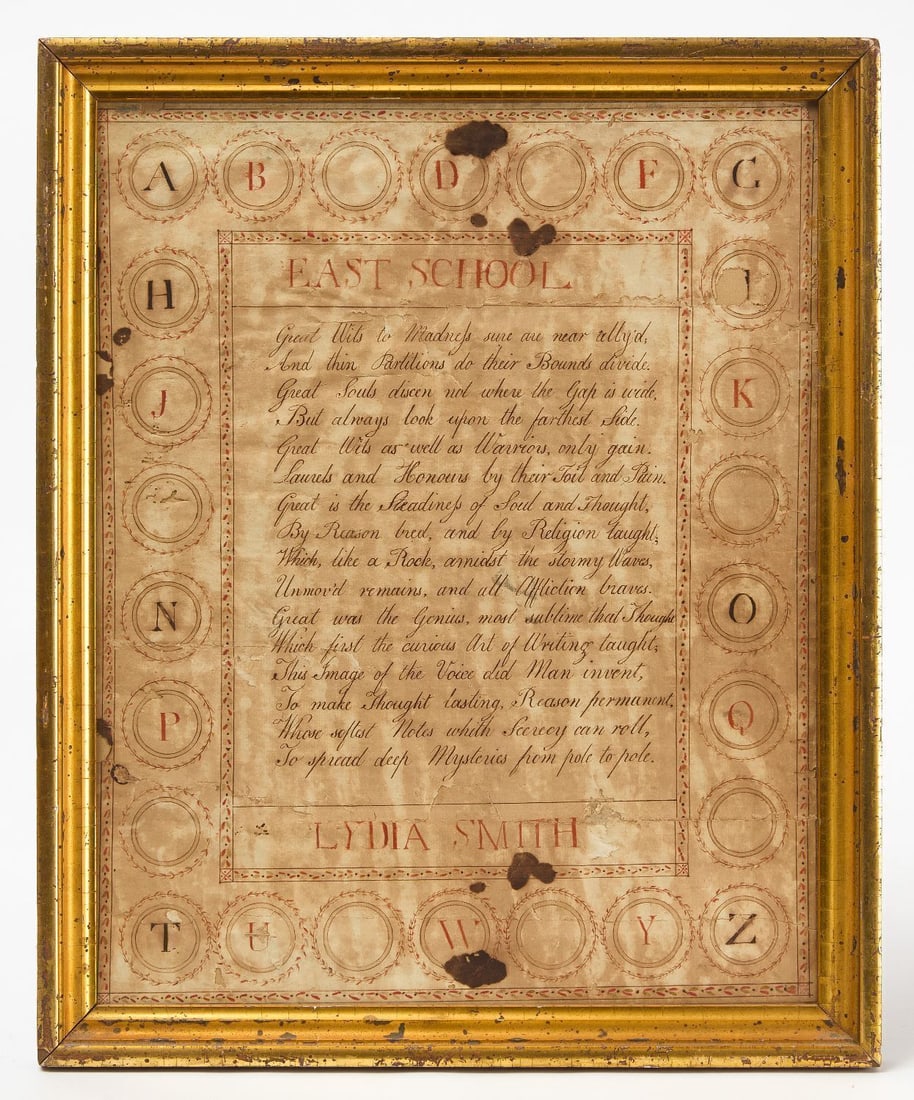 A B D F G
H I
J K
N O
P Q
T U W Y Z
EAST SCHOOL
Great Wits to Madneſs sure are near ally'd,
And thin Partitions do their Bounds divide.
Great Souls discen not where the Gap is wide,
But always look upon the farthest Side.
Great Wits as well as Warriors, only gain.
Laurels and Honours by their Toil and Pain.
Great is the Steadineſs of Soul and Thought,
By Reason bred, and by Religion taught;
Which, like a Rock, amidst the stormy Waves,
Unmov'd remains, and all Affliction braves.
Great was the Genius, most sublime that Thought
Which first the curious Art of Writing taught;
This Image of the Voice did Man invent,
To make Thought lasting, Reason permanent.
Whose softest Notes whith Secrecy can roll,
To spread deep Mysteries from pole to pole.
LYDIA SMITH